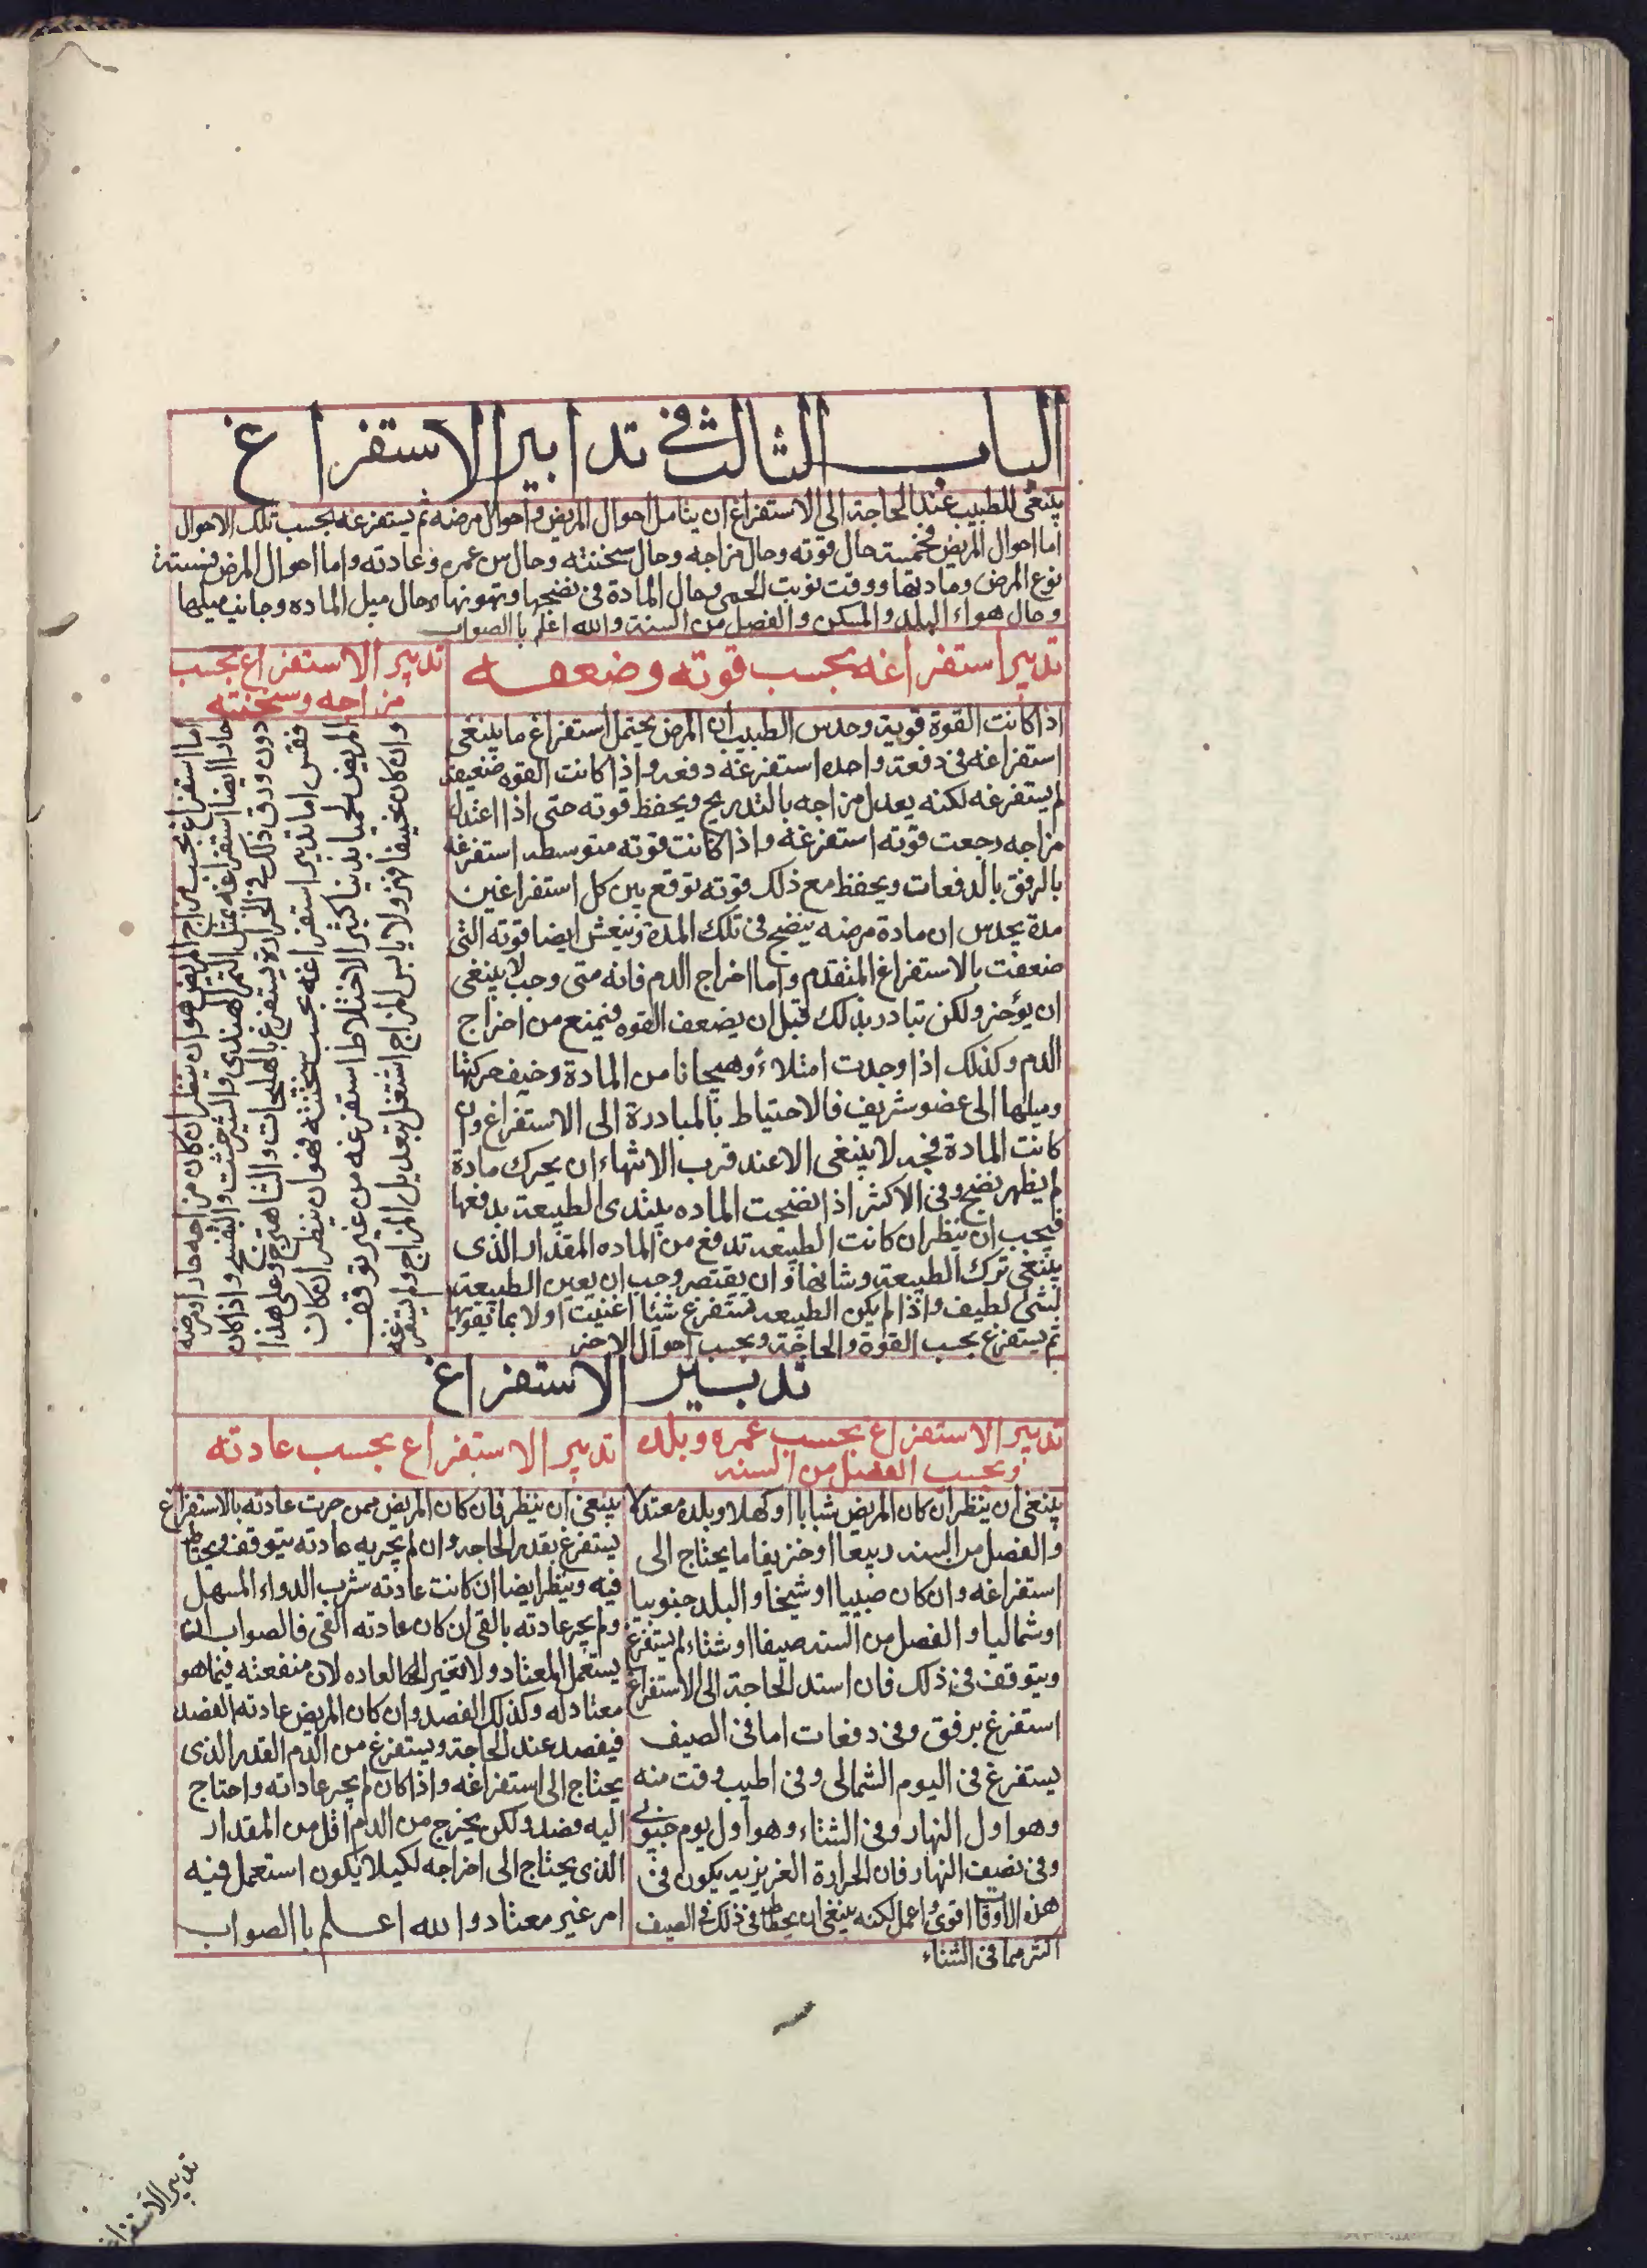 الباب الثالث في تدابير الاستفراغ
ينبغى للطبيب عند الحاجة الى الاستفراغ ان يتامل احوال المريض واحوال مرضه ثم يستفرغه بحسب تلك الاحوال
اما احوال المريض فخمسة حال قوته وحال مزاجه وحال سخنته وحال سن عمره وعادته واما احوال المرض فستة
نوع المرض ومادتها ووقت نوبت الحمى وحال المادة فى نضجها وتهونها وحال ميل الماده وجانب ميلها
وحال هواء البلد والمسكن والفصل من السنة والله اعلم باالصواب
تدبير استفراغه بحسب قوته وضعفه
اذا كانت القوة قوية وحدس الطبيب ان المرض يحتمل استفراغ ما ينبغى
استفراغه فى دفعة واحده استفرغه دفعه واذا كانت القوه ضعيفة
لم يستفرغه لكنه يعدل مزاجه بالتدريج ويحفظ قوته حتى اذا اعتدل
مزاجه رجعت قوته استفرغه واذا كانت قوته متوسطه استفرغه
بالرفق بالدفعات ويحفظ مع ذلك قوته توقع بين كل استفراغين
مدة يحدس ان مادة مرضه ينضج فى تلك المدة وينعش ايضا قوته التى
ضعفت بالاستفراغ المتقدم واما اخراج الدم فانه متى وجب لا ينبغى
ان يؤخر ولكن تبادر بذلك قبل ان يضعف القوه فيمنع من اخراج
الدم وكذلك اذا وجدت امتلاء وهيجانا من المادة وخيف حركتها
وميلها الى عضو شريف فالاحتياط بالمبادرة الى الاستفراغ وان
كانت المادة فجه لا ينبغى الا عند قرب الانتهاء ان يحرك مادة
لم يظهر نضج وفى الاكثر اذا نضجت الماده يبتدى الطبيعة بدفعها
فيجب ان ينظر ان كانت الطبيعه تدفع من الماده المقدار الذى
ينبغى ترك الطبيعة وشانها وان يقتصر وجب ان يعين الطبيعة
بشئ لطيف واذا لم يكن الطبيعه تستفرغ شيئا اعنيت اولا بما تقويها
ثم يستفرغ بحسب القوة والحاجة وبحسب احوال الاخر
تدبير الاستفراغ بحسب
مزاجه وسخنته
اما استفراغ بحسب مزاج المريض هو ان ينظر ان كان مزاجه حارا ومرضه
حارا ايضا استفراغه بمثل التمر الهندى والشيرخشت والبنفسج واذا كان
دون ورق ذلك فى الحرارة يستفرغ بالهليلجات والشاهترج وعلى هذا
فقس اما تدبير استفراغه بحسب سخنته فهو ان ينظر ان كان
المريض لحميا بدنيا كثير الاختلاط استفرغه من غير توقف
وان كان نحيفا مهزولا يابس المزاج اشتغل بتعديل المزاج ولم يستفرغه
تدبير الاستفراغ
تدبير الاستفراغ بحسب عمره وبلده
وبحسب الفصل من السنه
ينبغى ان ينظر ان كان المريض شبابا او كهلا وبلده معتدلا
والفصل من السنه ربيعا او خريفا ما يحتاج الى
استفراغه وان كان صبيا او شيخا والبلد جنوبيا
او شماليا والفصل من السنه صيفا او شتاء لم يستفرغ
ويتوقف فى ذلك فان استد الحاجة الى الاستفراغ
استفرغ برفق وفى دفعات اما فى الصيف
يستفرغ فى اليوم الشمالى وفى اطيب وقت منه
وهو اول النهار وفى الشتاء وهو اول يوم جنوبى
وفى نصيف النهار فان الحرارة الغريزيه يكون فى
هذه الاوقات اقوى واعمل لكنه ينبغى ان يحطاط فى ذلك فى الصيف
اكثر مما فى الشتاء
تدبير الاستفراغ بحسب عادته
ينبغى ان ينظر فان كان المريض ممن جرت عادته بالاستفراغ
يستفرغ بقدر الحاجه وان لم يجر به عادته يتوقف ويحتاط
فيه وينظر ايضا ان كانت عادته شرب الدواء المسهل
ولم يجر عادته بالقى ان كان عادته القى فالصواب ان
يستعمل المعتاد ولا تغير الحال العاده لان منفعته فيما هو
معتاد له وكذلك الفصد وان كان المريض عادته الفصد
فيفصد عند الحاجة ويستفرغ من الدم القدر الذى
يحتاج الى استفراغه واذا كان لم يجر عاداته واحتاج
اليه فصد ولكن يخرج من الدم اقل من المقدار
الذى يحتاج الى اخراجه لكيلا يكون استعمل فيه
امر غير معتاد والله اعلم باالصواب
تدبير الاستفراغ